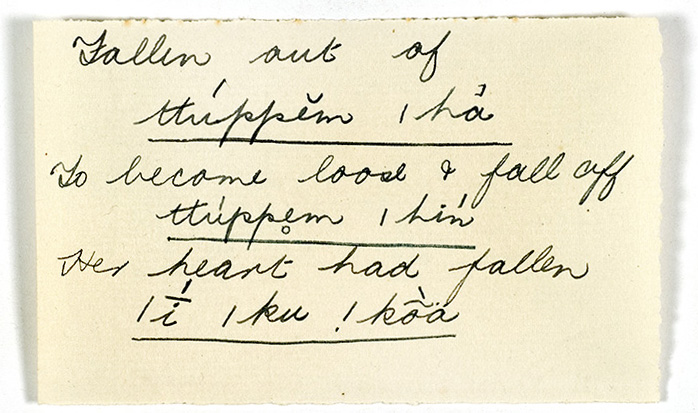 Fallen out of
ttúppĕm |hå
To become loose & fall off
ttúppe̥m |hiń
Her heart had fallen
|ī́ |ku !kȭ̀ä